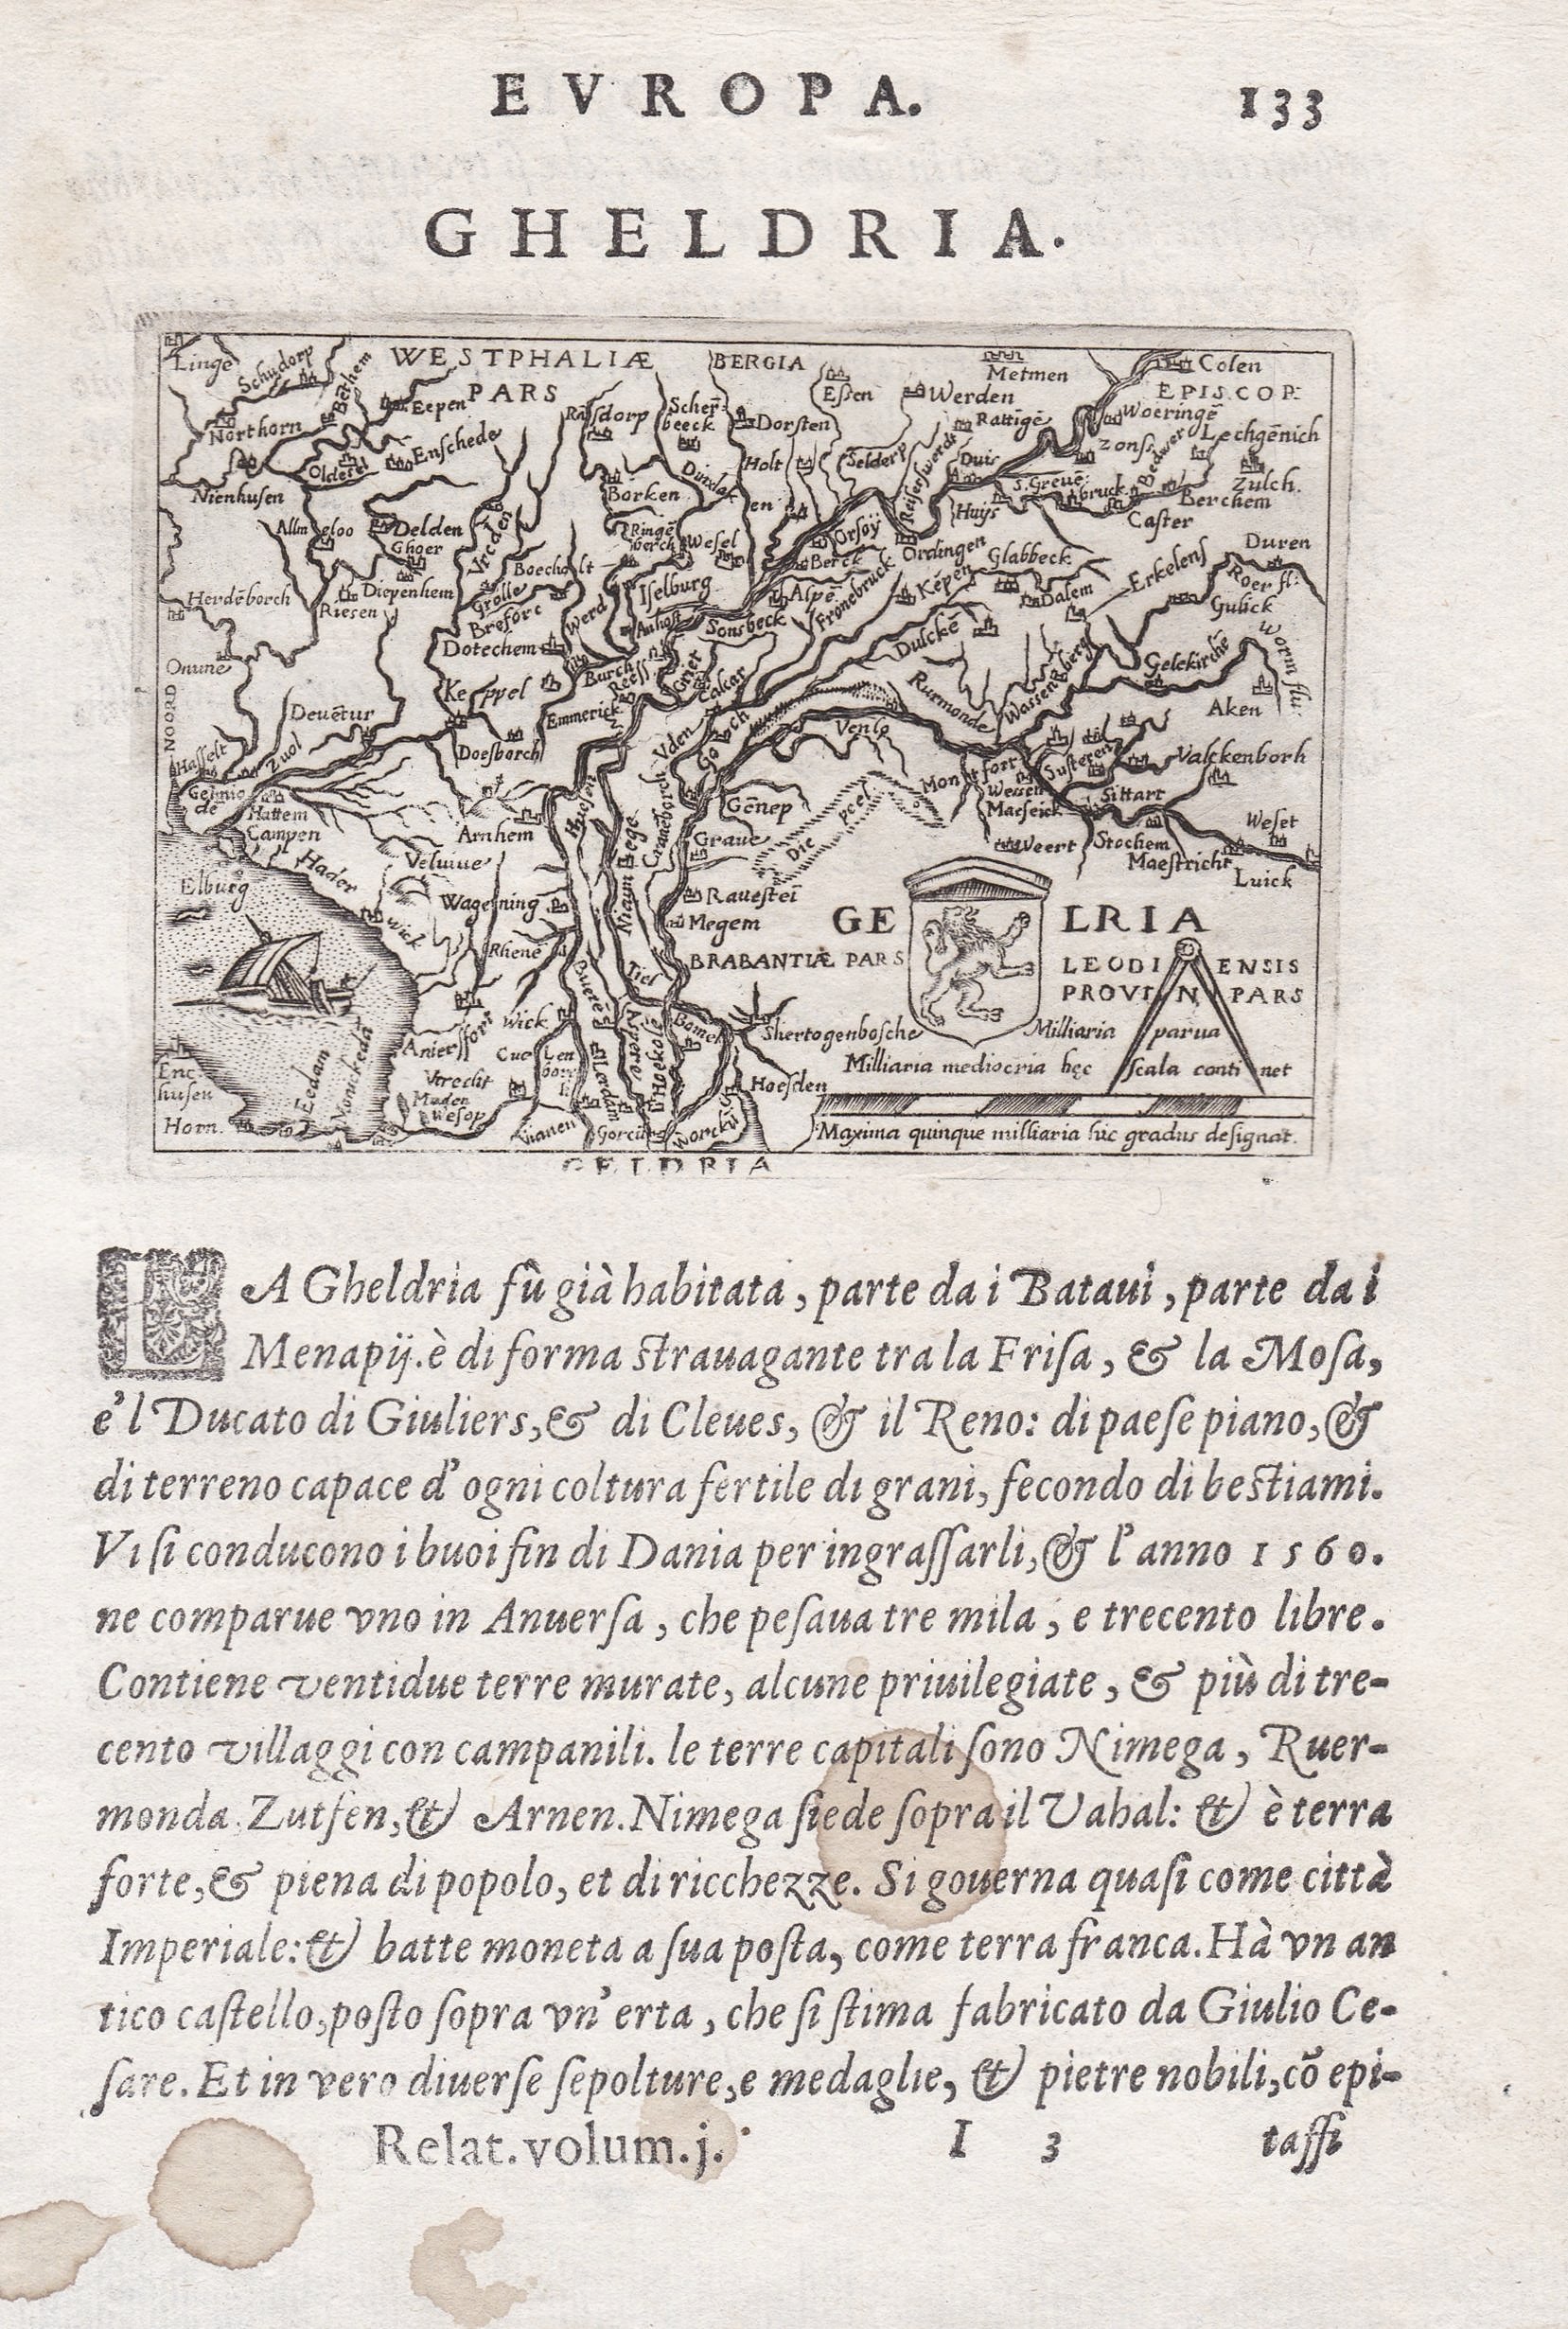 EVROPA. 133
GHELDRIA.
Linge
Schudorp
Bethem
WESTPHALIÆ
PARS
BERGIA
Metmen
Colen
EPISCOP.
Eepen
Northorn
Enschede
Nienhusen
Scher̄
beeck
Dorsten
Eſſen
Werden
Rattigē
Woeringē
Zonss
Lechgēnich
Zulch.
Berchem
Caster
Duis
Holt
Borken
Delden
Ghoer
Vreden
Ringē
berch
Wesel
Orsoÿ
Berck
Huÿs
Ordingen
Glabbeck
Duren
Roer fl:
Erkelens
Gulick
Herdēborch
Riesen
Diepenhem
Grolle
Brefort
Boecholt
Iselburg
Werd
Anholt
Sonsbeck
Alpē
Fronebruck
Kēpen
Dalem
Dulckē
Gelekirchē
Worm flu:
Aken
Dotechem
Keppel
Burch
Reess
Griet
Calcar
Emmerick
Doesborch
Devētur
Zuol
Hasselt
NOORD
Rurmonde
Wassengberg
Venlo
Goch
Vden
Montfort
Susteren
Valckenborh
Hattem
Campen
Elburg
Harderwick
Arnhem
Veluwe
Wagening
Rhenē
Huesen
Craneborch
Gēnep
Grave
Die peel
Weert
Maeseick
Sittart
Stochem
Maestricht
Weset
Luick
Ravesteī
Megem
GELRIA
BRABANTIÆ PARS
LEODIENSIS
PROVIN PARS
Tiel
Bomel
Shertogenbosche
Hoesden
Wick
Vtrecht
Muden
Wesop
Enc
husen
Horn.
Eedam
Vianen
Gorcum
Worckū
Milliaria parua
Milliaria mediocria hęc scala continet
Maxima quinque milliaria huc gradus designat.
GELDRIA
LA Gheldria fù già habitata, parte da i Bataui, parte da i
Menapij. è di forma strauagante tra la Frisa, & la Mosa,
e'l Ducato di Giuliers, & di Cleues, & il Reno: di paese piano, &
di terreno capace d'ogni coltura fertile di grani, fecondo di bestiami.
Vi si conducono i buoi fin di Dania per ingrassarli, & l'anno 1560.
ne comparue vno in Anuersa, che pesaua tre mila, e trecento libre.
Contiene ventidue terre murate, alcune priuilegiate, & più di tre-
cento villaggi con campanili. le terre capitali sono Nimega, Ruer-
monda. Zutfen, & Arnen. Nimega siede sopra il Vahal: & è terra
forte, & piena di popolo, et di ricchezze. Si gouerna quasi come città
Imperiale: & batte moneta a sua posta, come terra franca. Hà vn an
tico castello, posto sopra vn'erta, che si stima fabricato da Giulio Ce-
sare. Et in vero diuerse sepolture, e medaglie, & pietre nobili, cō epi-
Relat. volum. j. I 3 taffi